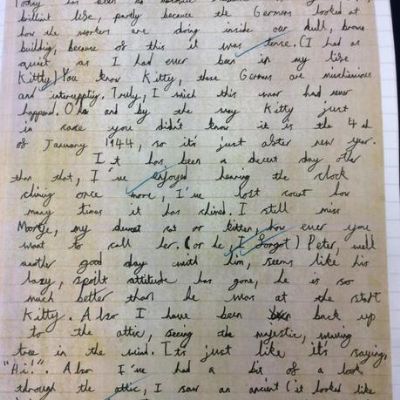 Today has been an
silent like, partly because the Germans looked at
how the workers are doing inside our dull, brown
building, because of this it was tense. (I had as
quiet as I had ever been in my life
Kitty) You know Kitty, these Germans are mischievous
and interrupting. Truly, I wich this war had never
happend. Oh and by the way Kitty just
in case you didn't know it is the 4th
of January 1944, so it's just after new year.
It has been a decent day other
than that, I've enjoyed hearing the clock
chiming once more, I've lost count how
many times it has chimed. I still miss
my dearest cat or kitten, how ever you
want to call her. (or he, I forgot) Peter, well
another good day with him, seems like his
lazy, spoilt attitude has gone, he is so
much better than he was at the start
Kitty. Also I have been back up
to the attic, seeing the majestic, waving
tree in the wind. Its just like it's saying,
"Hi!". Also I've had a bit of a look
through the attic, I saw an ancient (it looked like